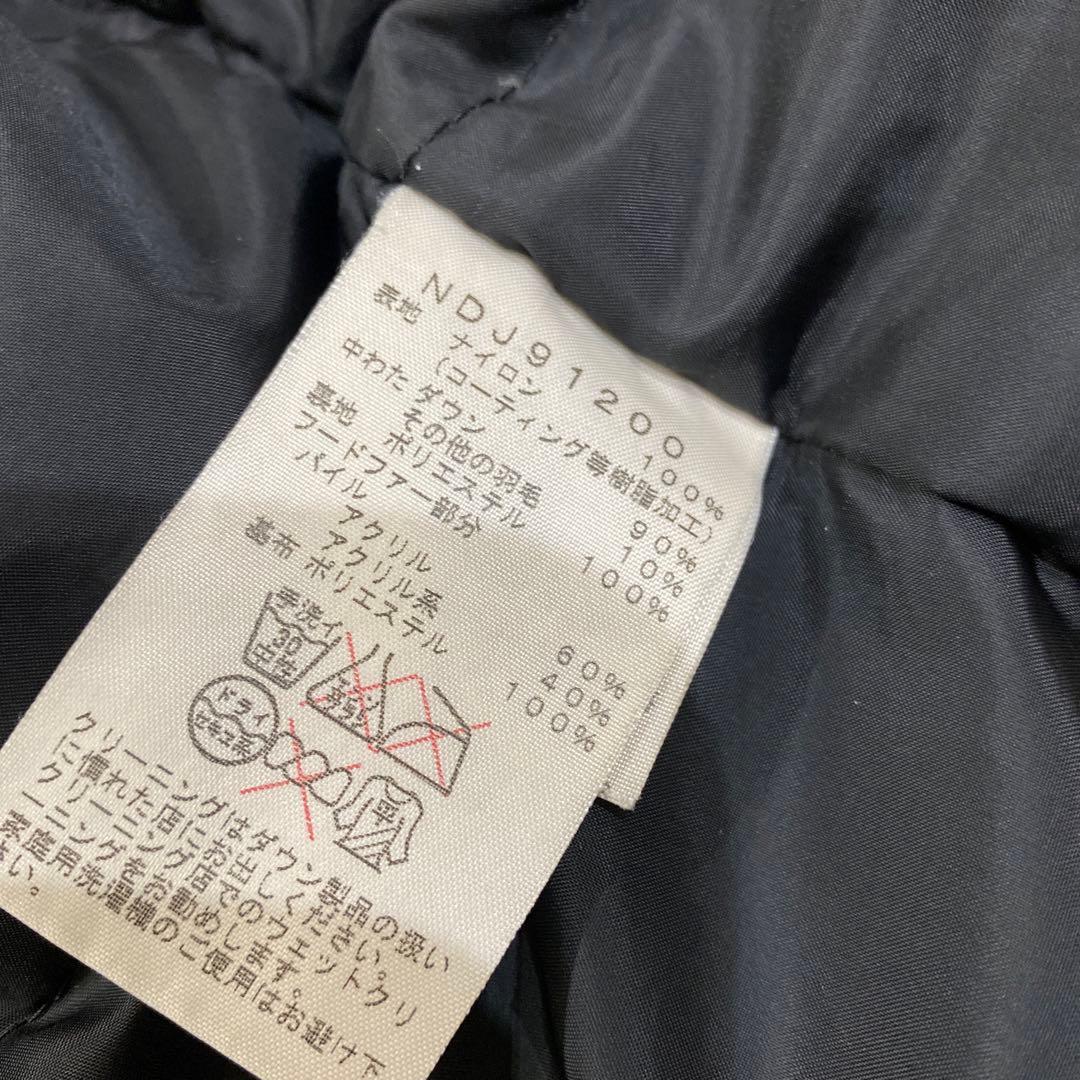 NDJ91200
表地 ナイロン 100%
(コーティング等樹脂加工)
中わた ダウン 90%
その他の羽毛 10%
裏地 ポリエステル 100%
フードファー部分
パイル アクリル 60%
アクリル系 40%
基布 ポリエステル 100%
手洗イ
30
中性
エンソ
サラシ
ドライ
セキユ系
平
クリーニングはダウン製品の扱い
に慣れた店にお出しください。
クリーニング店でのウェットクリ
ーニングをお勧めします。
家庭用洗濯機のご使用はお避け下
さい。